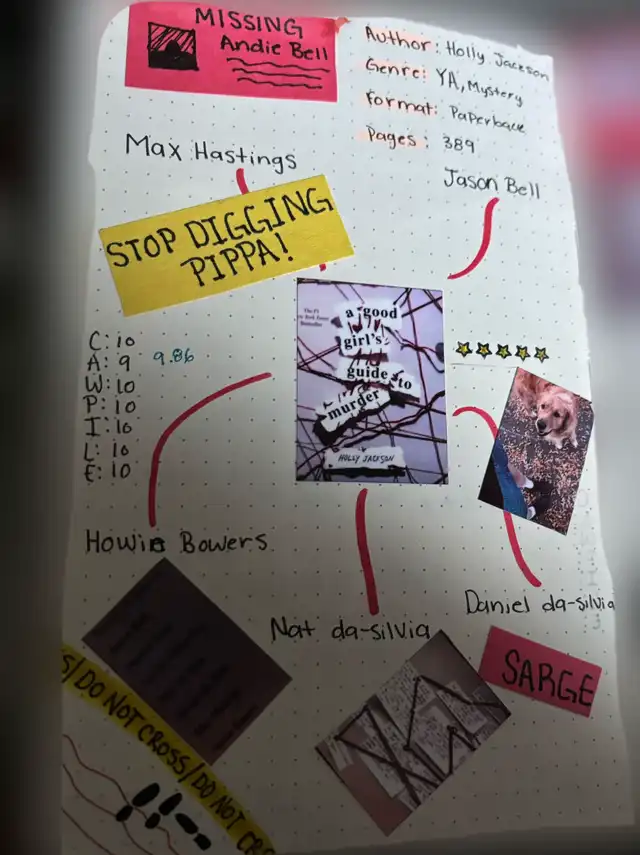 MISSING
Andie Bell
Author: Holly Jackson
Genre: YA, Mystery
Format: Paperback
Pages: 389
Max Hastings
Jason Bell
STOP DIGGING
PIPPA!
a good
girl's
guide to
murder
HOLLY JACKSON
C: 10
A: 9 9.86
W: 10
P: 10
I: 10
L: 10
E: 10
Howie Bowers
Nat da-silvia
Daniel da-silvia
SARGE
S/DO NOT CROSS/DO NOT CR